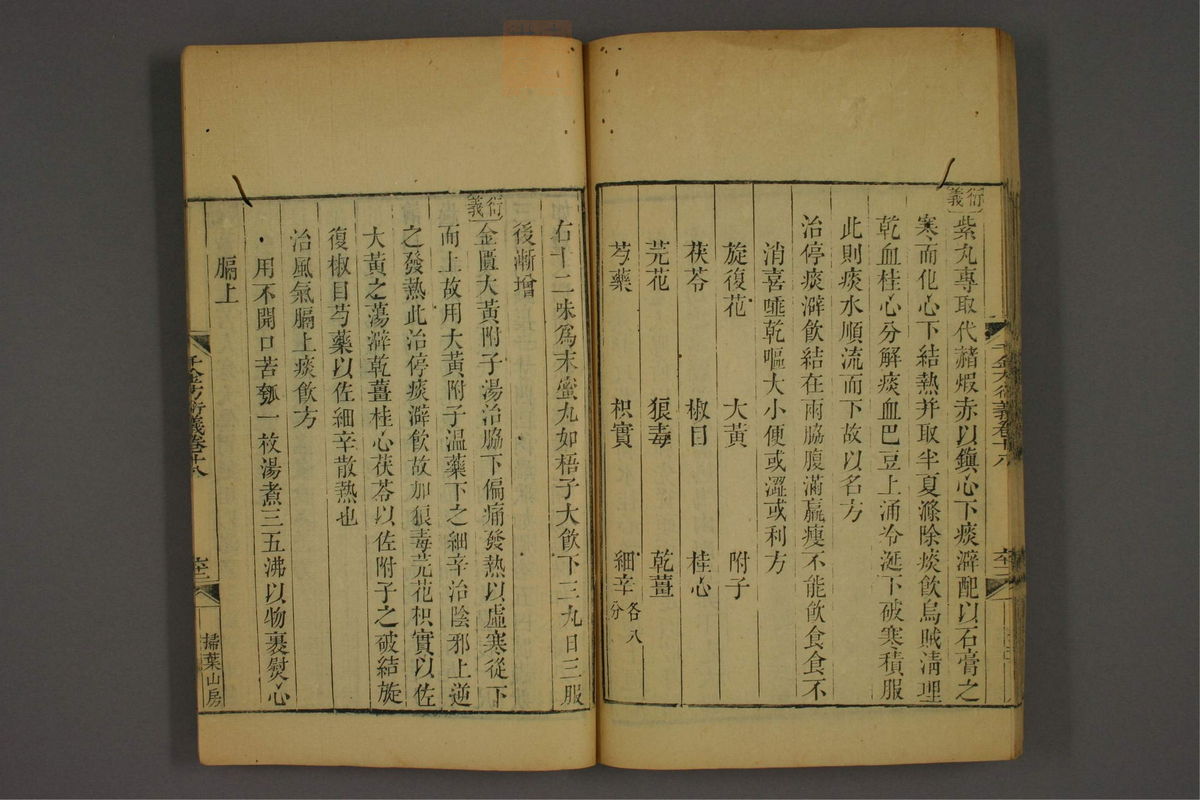 衍義
紫丸專取代赭煆赤以鎭心下痰澼配以石膏之
寒而化心下結熱并取半夏滌除痰飲烏賊淸理
乾血桂心分解痰血巴豆上涌冷涎下破寒積服
此則痰水順流而下故以名方
治停痰澼飲結在兩脇腹滿羸瘦不能飲食食不
消喜唾乾嘔大小便或澀或利方
旋復花 大黃 附子
茯苓 椒目 桂心
芫花 狼毒 乾薑
芍藥 枳實 細辛各八分
右十二味爲末蜜丸如梧子大飲下三丸日三服
後漸增
衍義
金匱大黃附子湯治脇下偏痛發熱以虛寒從下
而上故用大黃附子溫藥下之細辛治陰邪上逆
之發熱此治停痰澼飲故加狼毒芫花枳實以佐
大黃之蕩澼乾薑桂心茯苓以佐附子之破結旋
復椒目芍藥以佐細辛散熱也
治風氣膈上痰飲方
用不開口苦瓠一枚湯煮三五沸以物裹熨心
膈上
千金方衍義卷十八
掃葉山房